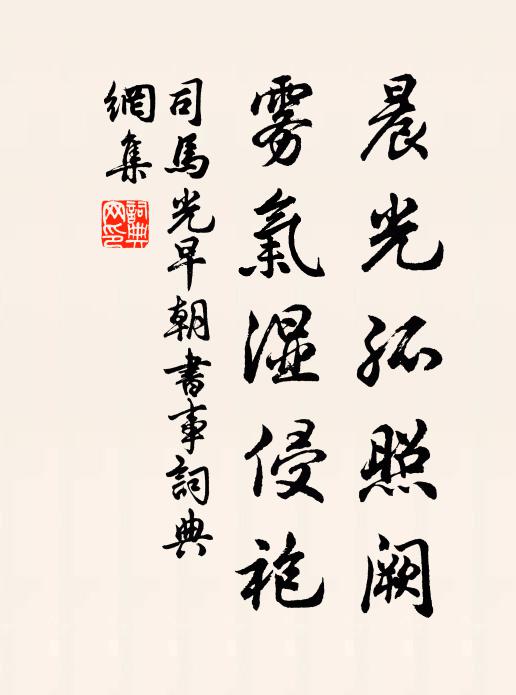 晨光孤照阙
雾氣湿侵袍
司馬光早朝書事詞典
網集
詞典
网印